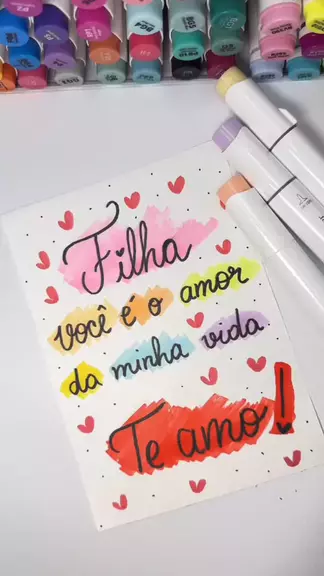 Filha
você é o amor
da minha vida
Te amo!